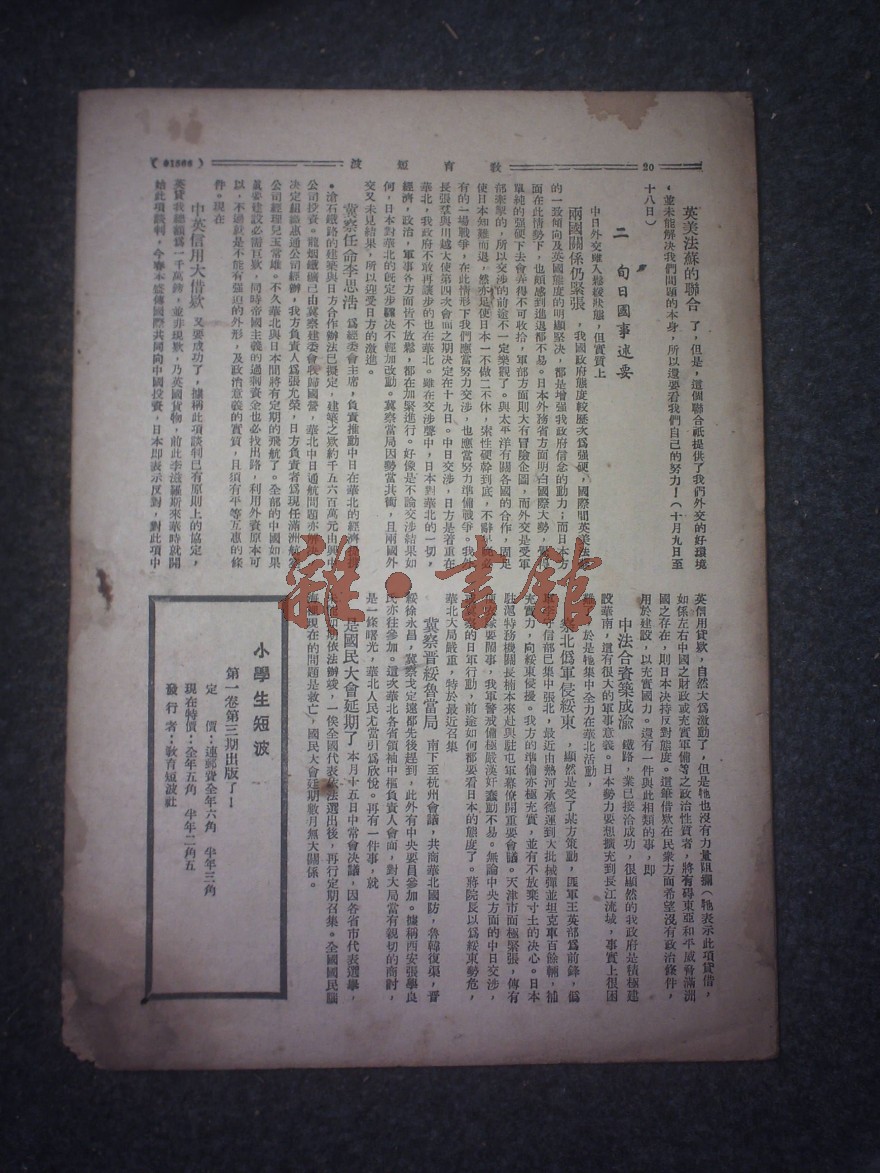 20
教育短波
(01566)
英美法蘇的聯合 了,但是,這個聯合祇提供了我們外交的好環境
,並未能解決我們問題的本身,所以還要看我們自己的努力!(十月九日至
十八日)
二 旬日國事述要
中日外交雖入鬆緩狀態,但實質上
兩國關係仍緊張 ,我國政府態度較歷次爲強硬,國際間英美法蘇
的一致傾向及英國態度的明顯堅決,都是增強我政府信念的動力;而日本方
面在此情勢下,也頗感到進退都不易。日本外務省方面明白國際大勢,覺得
單純的強硬下去會弄得不可收拾,軍部方面則大有冒險企圖,而外交是受軍
部牽掣的,所以交涉的前途不一定樂觀了。與太平洋有關各國的合作,固足
使日本知難而退,然亦是使日本一不做二不休,索性硬幹到底,不辭
有的一場戰爭,在此情形下我們應當努力交涉,也應當努力準備戰爭。我外
長張羣與川越大使第四次會面之期決定在十九日。中日交涉,日方是着重在
華北,我政府不敢再讓步的也在華北。雖在交涉聲中,日本對華北的一切,
經濟,政治,軍事各方面皆不放鬆,都在加緊進行。好像是不論交涉結果如
何,日本對華北的旣定步驟決不輕加改動。冀察當局因勢當其衝,且兩國外
交又未見結果,所以迎受日方的激進。
冀察任命李思浩 爲經委會主席,負責推動中日在華北的經濟
。滄石鐵路的建築與日方合作辦法已擬定,建築之欵約千五六百萬元由興中
公司投資。龍烟鐵礦已由冀察建委會收歸國營,華北中日通航問題亦
決定組織惠通公司經辦,我方負責人爲張允榮,日方負責者爲現任滿洲航空
公司經理兒玉常雄。不久華北與日本間將有定期的飛航了。全部的中國如果
眞要建設必需巨欵,同時帝國主義的過剩資金也必找出路,利用外資原本可
以,不過就是不能有強迫的外形,及政治意義的實質,且須有平等互惠的條
件。現在
中英信用大借欵 又要成功了,據稱此項談判已有原則上的協定,
英貸我總額爲一千萬鎊,並非現欵,乃英國貨物,前此李滋羅斯來華時就開
始此項談判,今春本盛傳國際共同向中國投資,日本即表示反對,對此項中
英信用貸欵,自然大爲激動了,但是牠也沒有力量阻攔(牠表示此項貸借,
如係左右中國之財政或充實軍備等之政治性質者,將有碍東亞和平威脅滿洲
國之存在,則日本決持反對態度。這種借欵在民衆方面希望沒有政治條件,
用於建設,以充實國力。還有一件與此相類的事,即
中法合資築成渝 鐵路,業已接洽成功,很顯然的我政府是積極建
設華南,還有很大的軍事意義。日本勢力要想擴充到長江流域,事實上很困
難,於是牠集中全力在華北活動,
察北僞軍侵綏東 ,顯然是受了某方策動,匪軍王英部爲前鋒,僞
軍李守信部已集中張北,最近由熱河承德運到大批械彈並坦克軍百餘輛,補
充實力,向綏東侵擾。我方的準備亦極充實,並有不放棄寸土的决心。日本
駐滬特務機關長楠本來赴與駐屯軍幕僚開重要會議。天津市面極緊張,傳有
便衣隊要鬧事,我軍警戒備極嚴漢奸蠢動不易。無論中央方面的中日交涉,
的日軍行動,前途如何都要看日本的態度了。蔣院長以爲綏東勢危,
華北大局嚴重,特於最近召集
冀察晉綏魯當局 南下至杭州會議,共商華北國防,魯韓復渠,晉
綏徐永昌,冀察戈定遠都先後趕到,此外有中央要員參加。據稱西安張學良
氏亦往參加。這次華北各省領袖中樞負責人會面,對大局當有親切的商討,
是一條曙光,華北人民尤當引爲欣悅。再有一件事,就
是國民大會延期了 本月十五日中常會決議,因各省市代表選舉,
未能如期依法辦竣,一俟全國代表依法選出後,再行定期召集。全國國民腦
海裡現在的問題是救亡,國民大會延期數月無大關係。
小學生短波
第一卷第三期出版了!
定 價:連郵費全年六角 半年三角
現在特價:全年五角 半年二角五
發行者:教育短波社
雜·書館